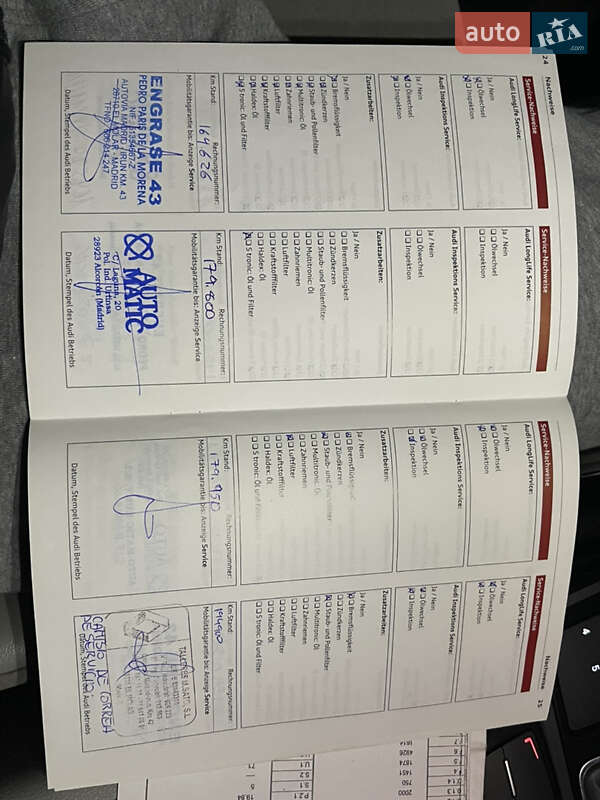 auto RIA.com
24
Nachweise
Service-Nachweise
Audi LongLife Service:
Ja / Nein
Ölwechsel
Inspektion
Audi Inspektions Service:
Ja / Nein
Ölwechsel
Inspektion
Zusatzarbeiten:
Ja / Nein
Bremsflüssigkeit
Zündkerzen
Staub- und Pollenfilter
Multitronic: Öl
Zahnriemen
Luftfilter
Kraftstofffilter
Haldex: Öl
S tronic: Öl und Filter
Km Stand:
Rechnungsnummer:
169.626
Mobilitätsgarantie bis: Anzeige Service
ENGRASE 43
PEDRO PARIS DE LA MORENA
AUTOVIA MADRID / IRUN KM. 43
Datum, Stempel des Audi Betriebs
Service-Nachweise
Audi LongLife Service:
Ja / Nein
Ölwechsel
Inspektion
Audi Inspektions Service:
Ja / Nein
Ölwechsel
Inspektion
Zusatzarbeiten:
Ja / Nein
Bremsflüssigkeit
Zündkerzen
Staub- und Pollenfilter
Multitronic: Öl
Zahnriemen
Luftfilter
Kraftstofffilter
Haldex: Öl
S tronic: Öl und Filter
Km Stand:
Rechnungsnummer:
179.800
Mobilitätsgarantie bis: Anzeige Service
AUTO
MATIC
C/ Laguna, 20
Pol. Ind. Urtinsa
28923 Alcorcón (Madrid)
Datum, Stempel des Audi Betriebs
Service-Nachweise
Audi LongLife Service:
Ja / Nein
Ölwechsel
Inspektion
Audi Inspektions Service:
Ja / Nein
Ölwechsel
Inspektion
Zusatzarbeiten:
Ja / Nein
Bremsflüssigkeit
Zündkerzen
Staub- und Pollenfilter
Multitronic: Öl
Zahnriemen
Luftfilter
Kraftstofffilter
Haldex: Öl
S tronic: Öl und Filter
Km Stand:
Rechnungsnummer:
179.950
Mobilitätsgarantie bis: Anzeige Service
Datum, Stempel des Audi Betriebs
Nachweise
25
Service-Nachweise
Audi LongLife Service:
Ja / Nein
Ölwechsel
Inspektion
Audi Inspektions Service:
Ja / Nein
Ölwechsel
Inspektion
Zusatzarbeiten:
Ja / Nein
Bremsflüssigkeit
Zündkerzen
Staub- und Pollenfilter
Multitronic: Öl
Zahnriemen
Luftfilter
Kraftstofffilter
Haldex: Öl
S tronic: Öl und Filter
Km Stand:
Rechnungsnummer:
Mobilitätsgarantie bis: Anzeige Service
CAMBIO DE CORREA
DE SERVICIO
Datum, Stempel des Audi Betriebs
4
5